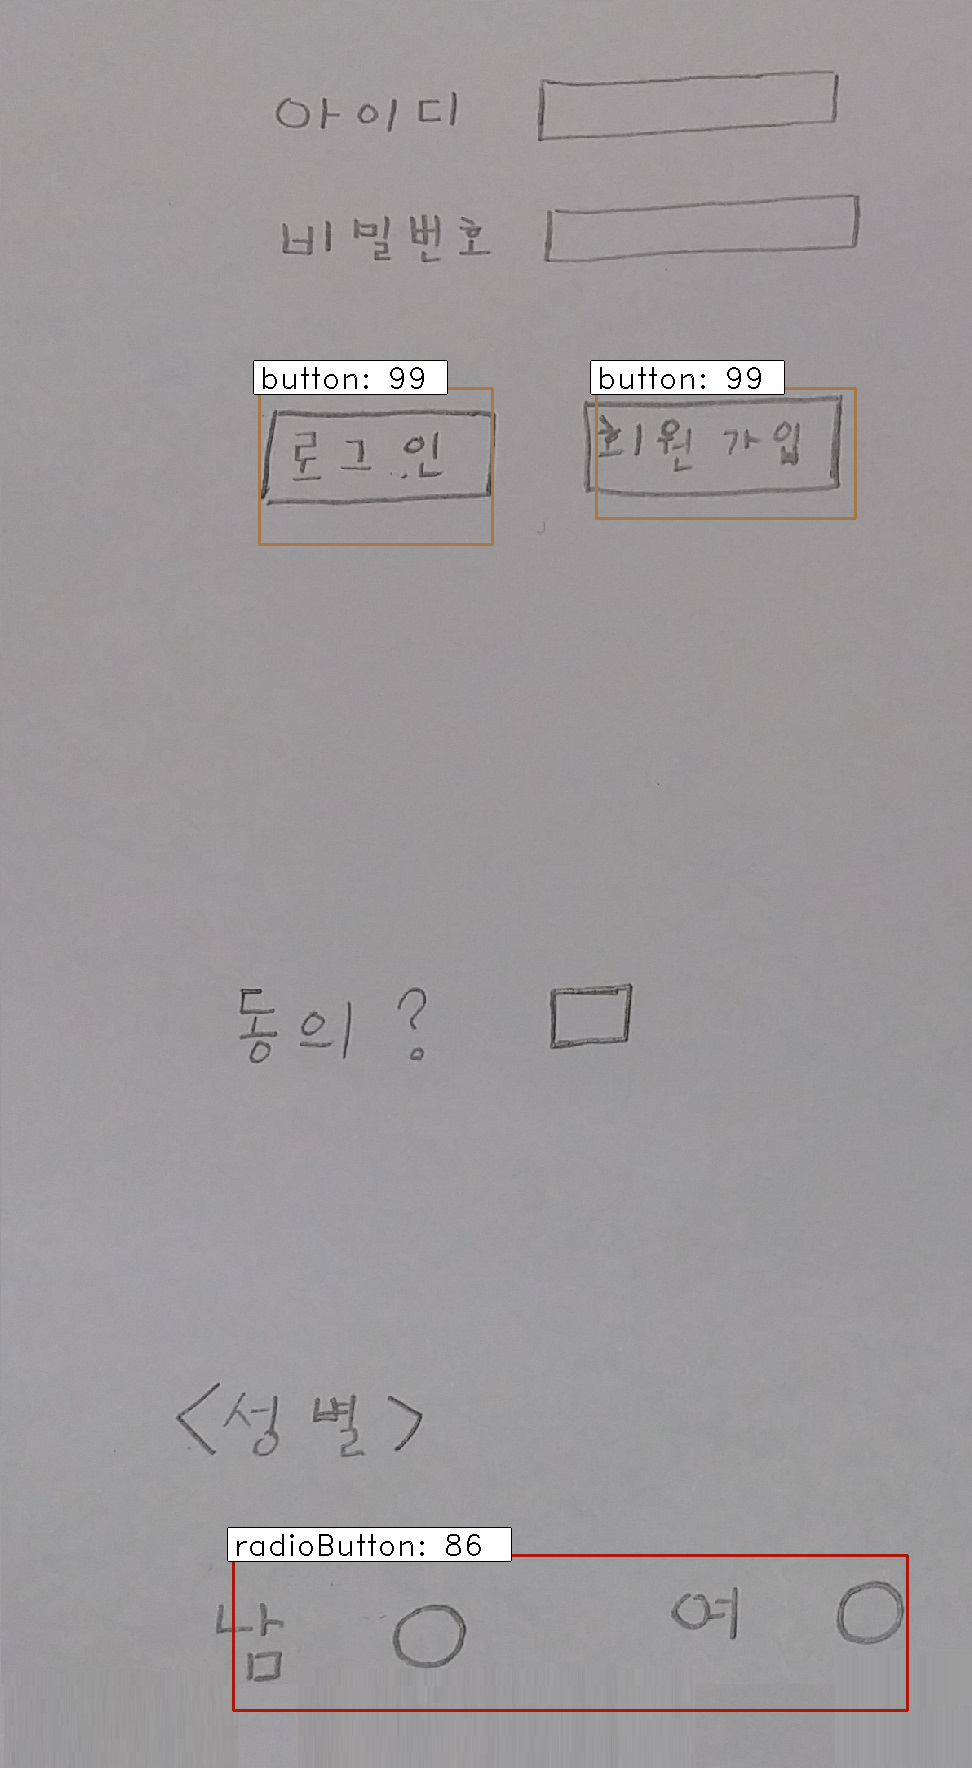 아이디
비밀번호
button: 99 button: 99
로그인 회원가입
동의?
<성별>
radioButton: 86
남 여